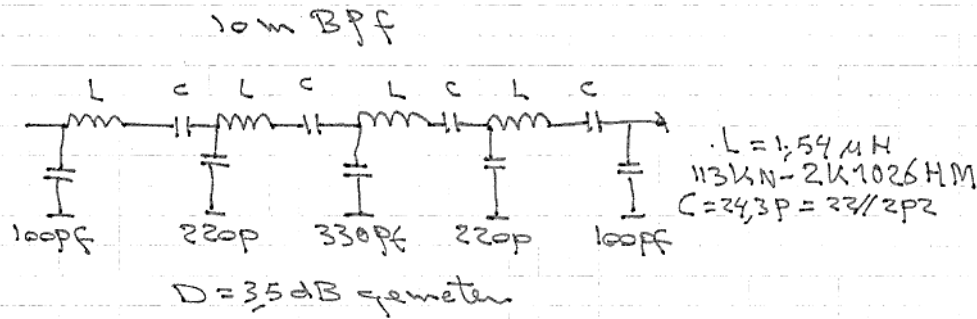 10m BPf
L c L c L c L c
L = 1,54 µH
113KN-2K1026HM
C = 24,3p = 22//2p2
100pf 220p 330pf 220p 100pf
D = 3,5 dB gemeten